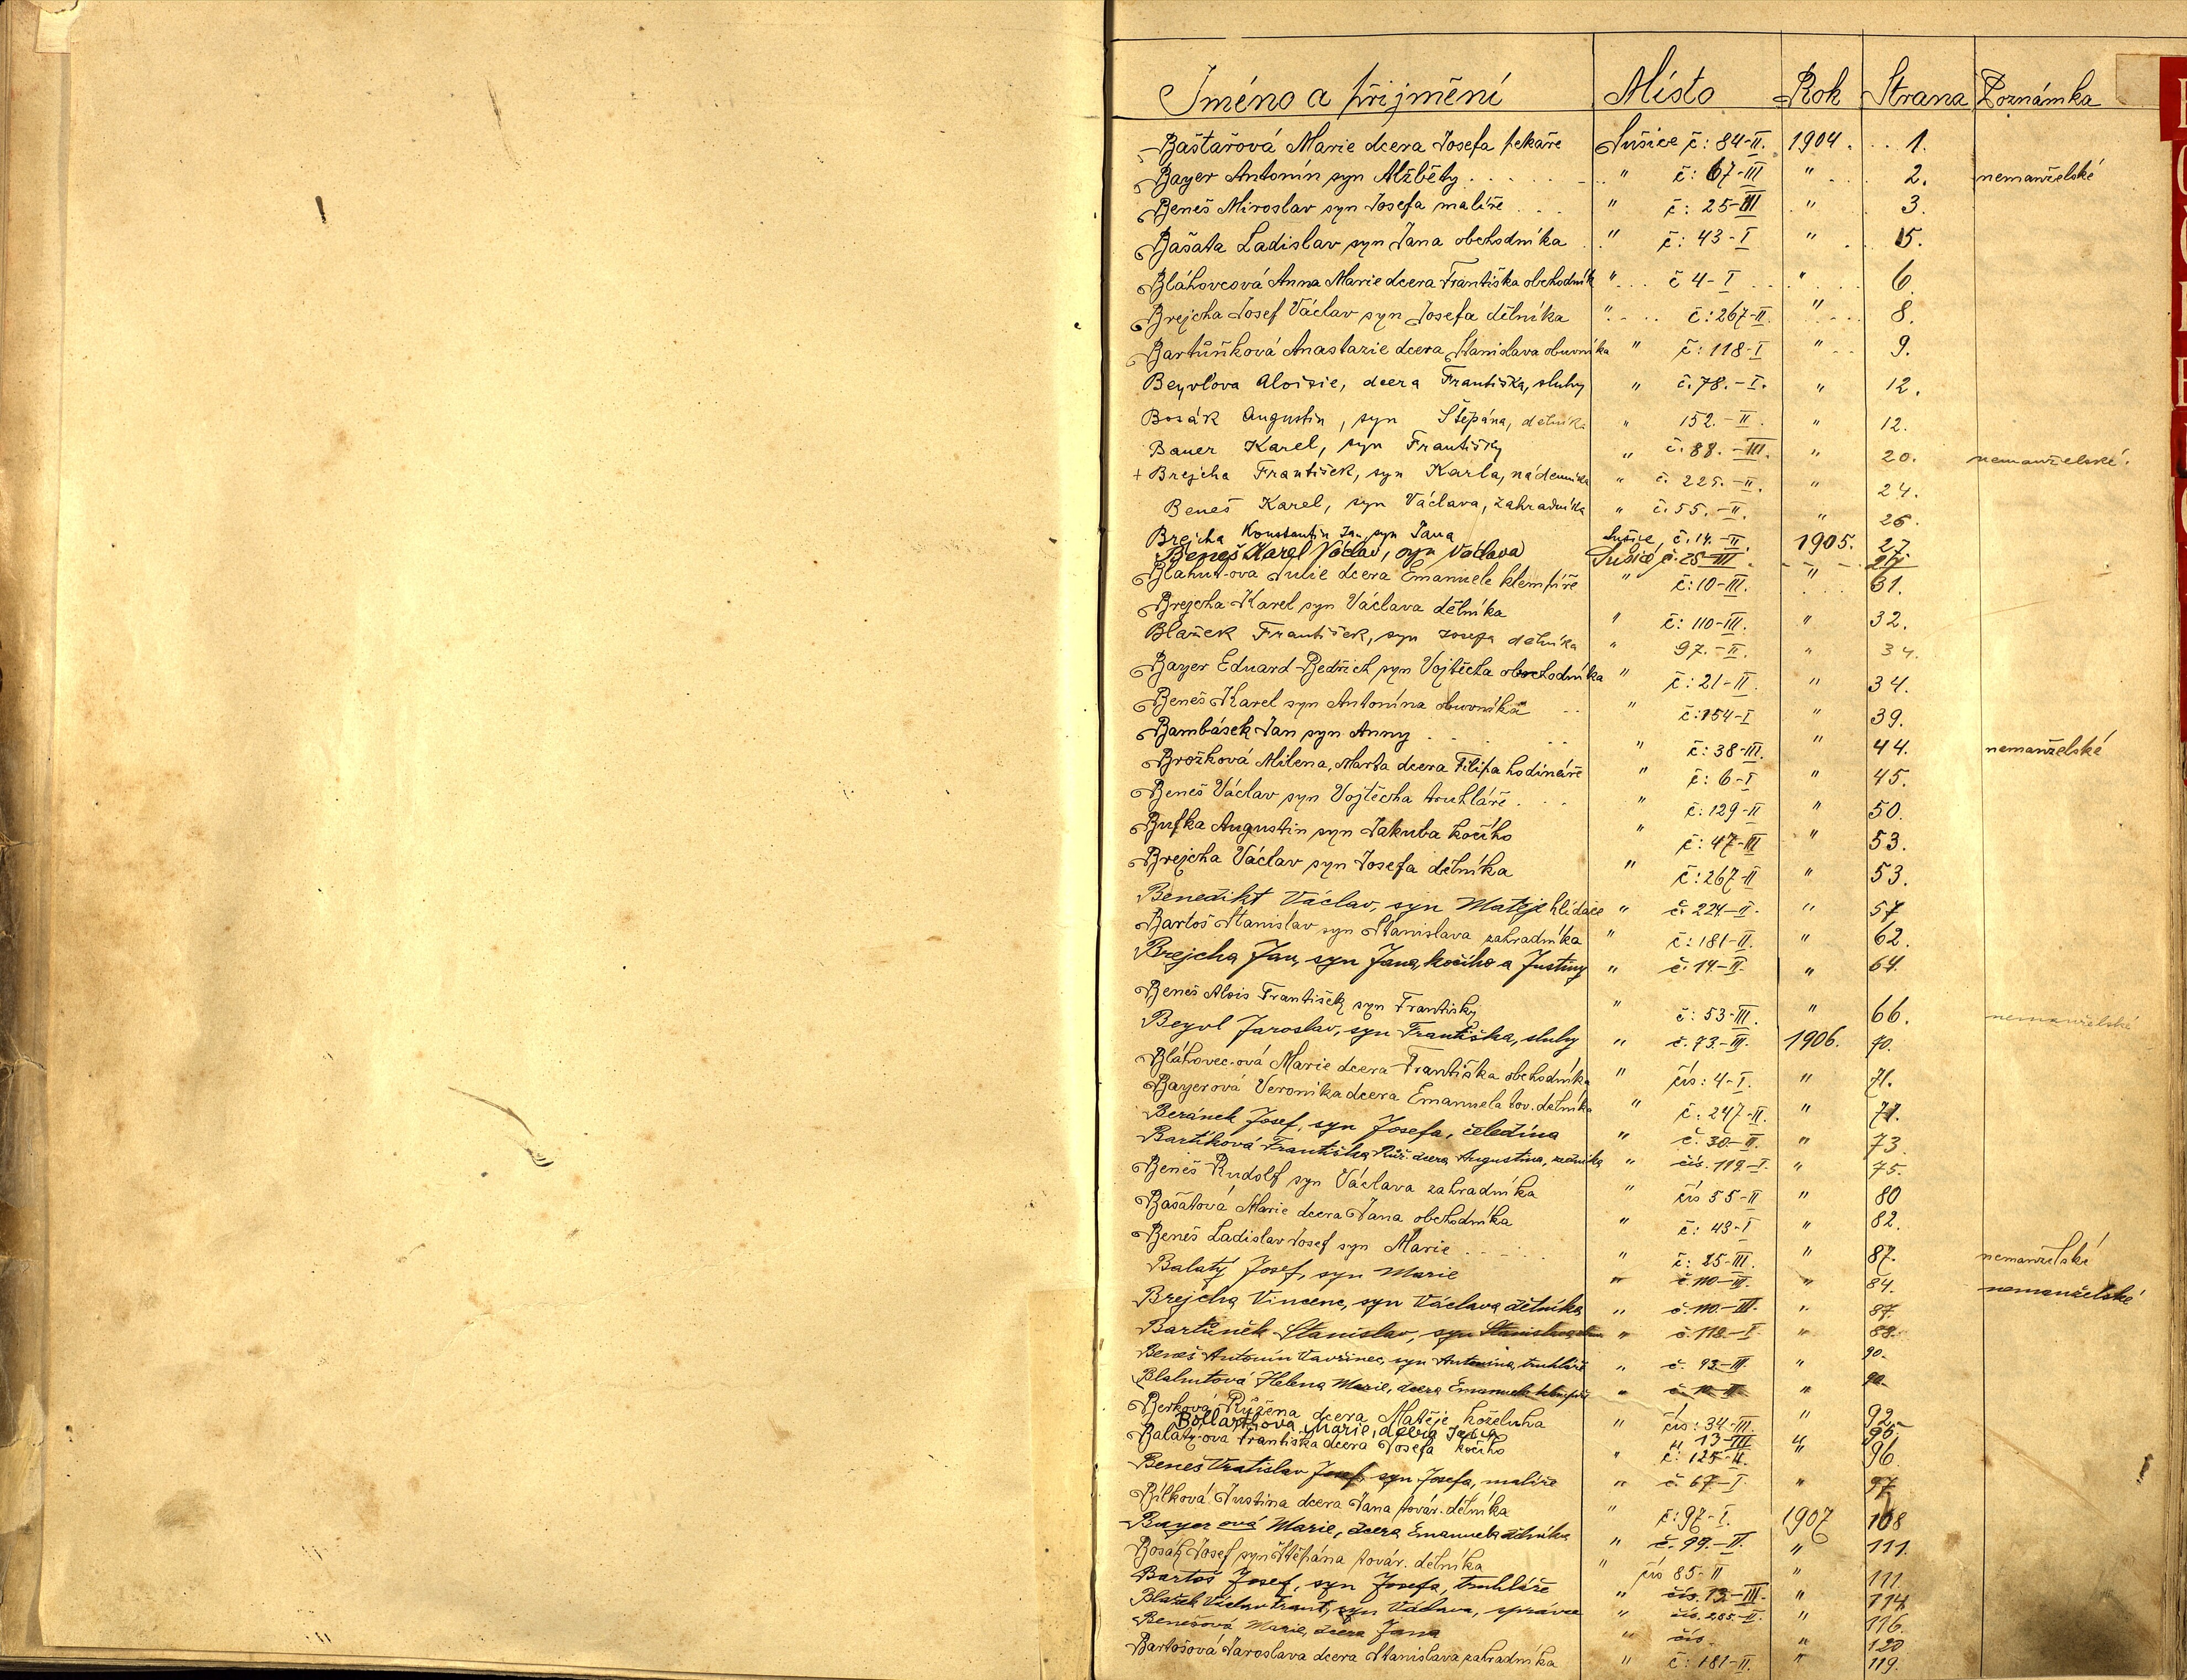 Jméno a příjmění Místo Rok Strana Poznámka
Baštařová Marie dcera Josefa pekaře Sušice č: 84-II. 1904. 1.
Bayer Antonín syn Alžběty " č: 67-III " 2. nemanželské
Beneš Miroslav syn Josefa malíře " č: 25-III " 3.
Bašata Ladislav syn Jana obchodníka " č: 43-I " 5.
Bláhovcová Anna Marie dcera Františka obchodník " č 4-I " 6.
Brejcha Josef Václav syn Josefa dělníka " č: 267-II. " 8.
Bartůňková Anastazie dcera Stanislava obuvníka " č: 118-I " 9.
Beyvlova Aloisie, dcera Františka, sluhy " č. 78.-I. " 12.
Bosák Augustin, syn Štěpána, dělníka " 152.-II. " 12.
Bauer Karel, syn Františky " č. 88.-III. " 20. nemanželské.
+ Brejcha František, syn Karla, nádeníka " č. 225.-II. " 24.
Beneš Karel, syn Václava, zahradníka " č. 55.-II. " 26.
Brejcha Konstantin Jan, syn Jana Sušice, č. 14.-II. 1905. 27.
Beneš Karel Václav, syn Václava Sušice č. 25-III.
Blahut-ova Julie dcera Emanuele klempíře " č: 10-III. " 31.
Brejcha Karel syn Václava dělníka " č: 110-III. " 32.
Blažek František, syn Josefa dělníka " 97.-II. " 34.
Bayer Eduard Bedřich syn Vojtěcha obchodníka " č: 21-II. " 34.
Beneš Karel syn Antonína obuvníka " č: 154-I " 39.
Bambásek Jan syn Anny " č: 38-III. " 44. nemanželské
Brožková Milena, Marta dcera Filipa hodináře " č: 6-I " 45.
Beneš Václav syn Vojtěcha truhláře " č: 129-II " 50.
Bufka Augustin syn Jakuba kočího " č: 47-III " 53.
Brejcha Václav syn Josefa dělníka " č: 267-II " 53.
Benedikt Václav, syn Matěje hlídače " č. 224-II. " 57
Bartoš Stanislav syn Stanislava zahradníka " č: 181-II. " 62.
Brejcha Jan, syn Jana, kočího a Justiny " č. 14-II. " 64.
Beneš Alois František syn Františky " č: 53-III. " 66. nemanželské
Beyvl Jaroslav, syn Františka, sluhy " č. 73.-III. 1906. 70.
Bláhovec-ová Marie dcera Františka obchodníka " čís: 4-I. " 71.
Bayerová Veronika dcera Emanuela tov. dělníka " č: 247-II. " 71.
Beránek Josef, syn Josefa, čeledína " č. 30.-II. " 73.
Bartíková Františka Růž. dcera Augustina, " čís. 119.-I. " 75.
Beneš Rudolf syn Václava zahradníka " čís 55-II " 80
Bašatová Marie dcera Jana obchodníka " č: 43-I " 82.
Beneš Ladislav Josef syn Marie " č: 25-III. " 87. nemanželské
Balatý Josef, syn Marie " č. 110-III. " 84. nemanželské
Brejcha Vincenc, syn Václava dělníka " č. 110.-III. " 87.
Bartůněk Stanislav, syn Stanislava " č. 118.-I. " 88.
Beneš Antonín Vavřinec, syn Antonína, truhláře " č. 93.-III. " 90.
Blahutová Helena Marie, dcera Emanuela klempíře " " 90.
Berková Růžena dcera Matěje koželuha " čís: 34-III. " 92.
Bollardhová Marie, dcera " 13-III " 95.
Balatý-ova Františka dcera Josefa kočího " č: 125-II. " 96.
Beneš Vratislav Josef, syn Josefa, malíře " č. 67-I. " 97
Bílková Justina dcera Jana továr. dělníka " č: 97-I. 1907 108
Bayer ová Marie, dcera Emanuela dělníka " č. 99.-II. " 111.
Bosák Josef syn Štěpána továr. dělníka " čís 85-II " 111.
Bartoš Josef, syn Josefa, truhláře " čís. 13.-III. " 114.
Blažek Václav Frant, syn Václava, správce " čís. 285.-II. " 116.
Benešová Marie, dcera Jana " čís. " 120
Bartošová Jaroslava dcera Stanislava zahradníka " č: 181-II. " 119.